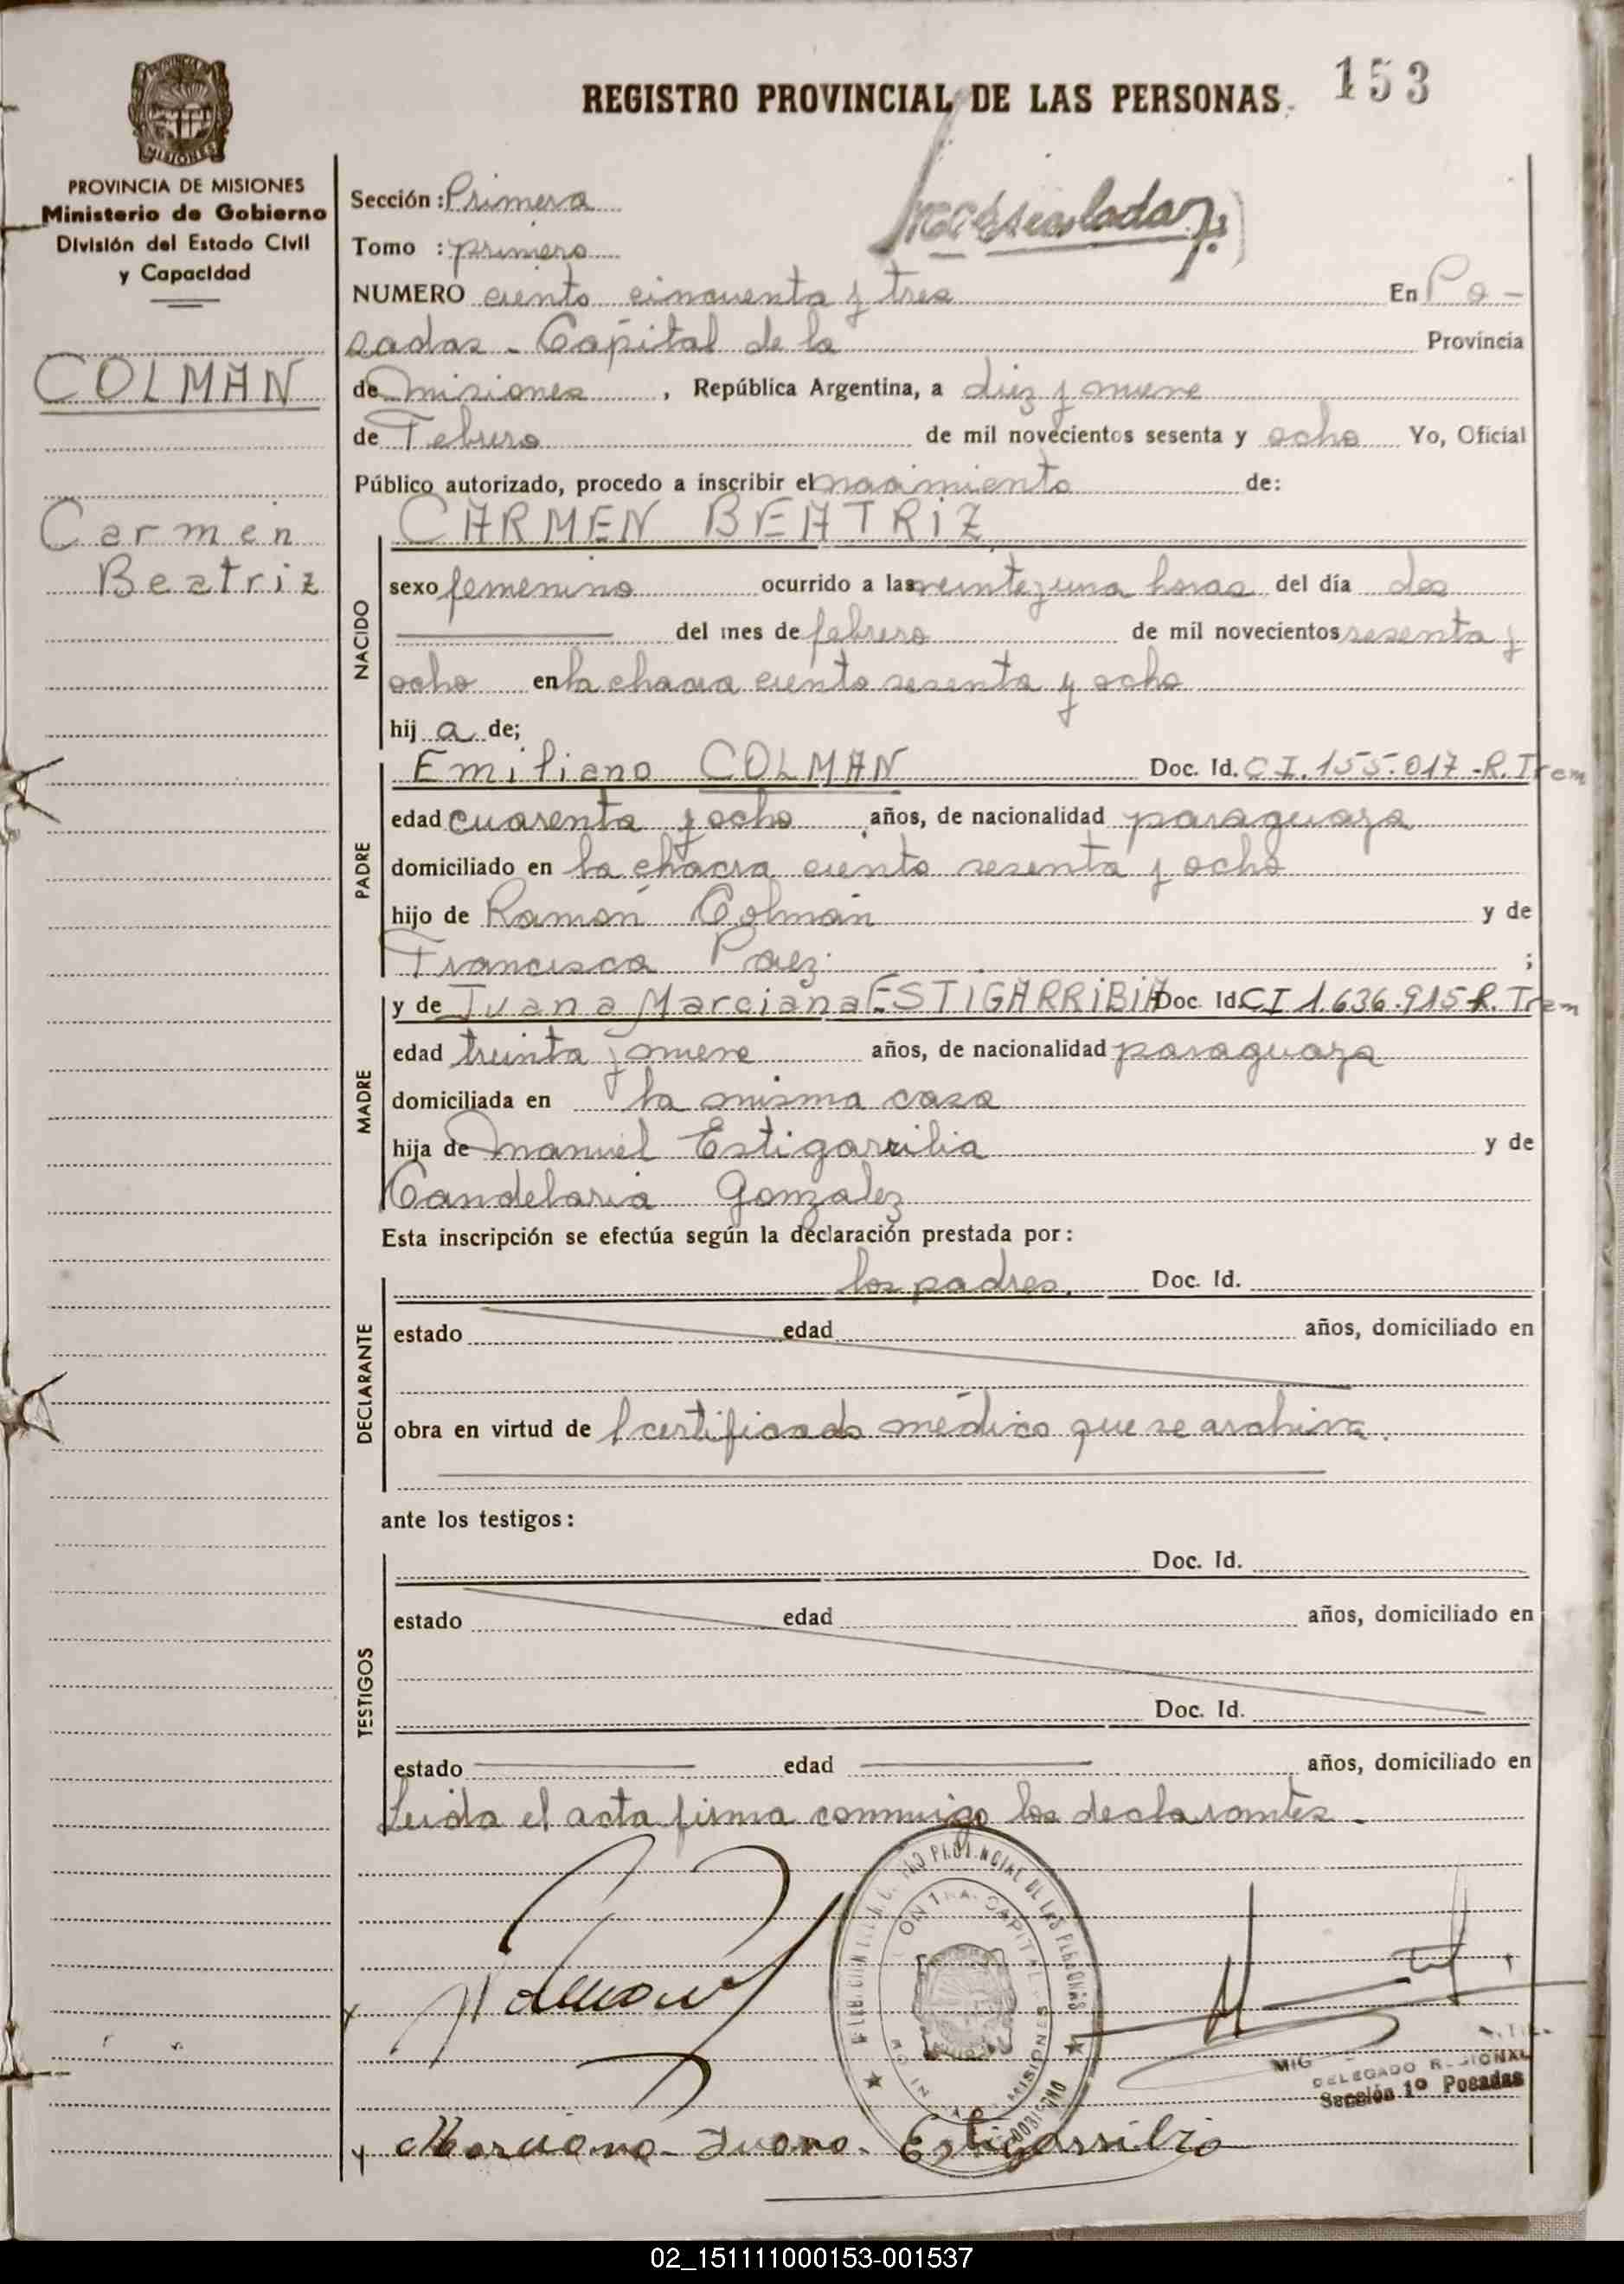 153
REGISTRO PROVINCIAL DE LAS PERSONAS
PROVINCIA DE MISIONES
Ministerio de Gobierno
División del Estado Civil
y Capacidad
COLMAN
Carmen
Beatriz
Sección: Primera
Tomo : primero
NUMERO ciento cincuenta y tres En Po-
sadas - Capital de la Provincia
de Misiones , República Argentina, a diez y nueve
de Febrero de mil novecientos sesenta y ocho Yo, Oficial
Público autorizado, procedo a inscribir el nacimiento de:
CARMEN BEATRIZ
NACIDO
sexo femenino ocurrido a las veinte y una horas del día dos
del mes de febrero de mil novecientos sesenta y
ocho en la chacra ciento sesenta y ocho
hij a de;
Emiliano COLMAN Doc. Id. C I. 155.017 -R. Trem
PADRE
edad cuarenta y ocho años, de nacionalidad paraguaya
domiciliado en la chacra ciento sesenta y ocho
hijo de Ramón Colman y de
Francisca Paez ;
MADRE
y de Juana Marciana ESTIGARRIBIA Doc. Id. C I 1.636.915 R. Trem
edad treinta y nueve años, de nacionalidad paraguaya
domiciliada en la misma casa
hija de Manuel Estigarribia y de
Candelaria Gonzalez
Esta inscripción se efectúa según la declaración prestada por:
DECLARANTE
los padres. Doc. Id.
estado edad años, domiciliado en
obra en virtud de l certificado médico que se archiva.
ante los testigos:
TESTIGOS
Doc. Id.
estado edad años, domiciliado en
Doc. Id.
estado edad años, domiciliado en
Leida el acta firma conmigo los declarantes.
MISIONES
DELEGADO REGIONAL
Sección 1º Posadas
Marciana Juana Estigarribia
02_151111000153-001537